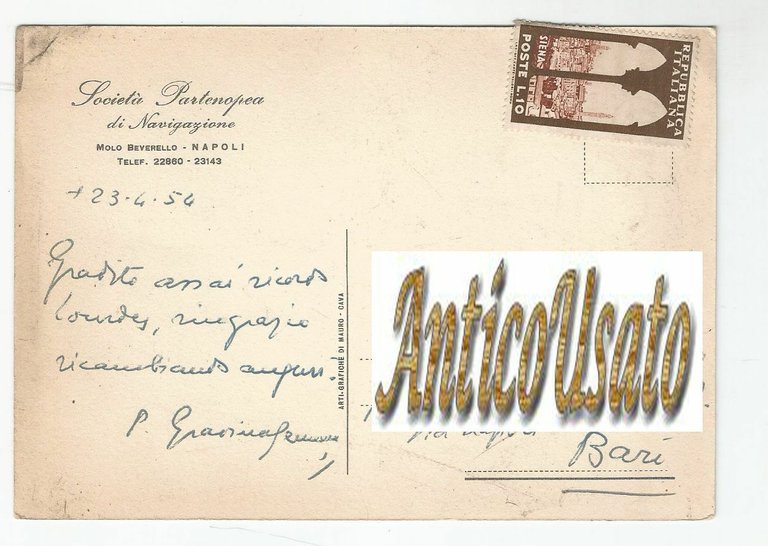 Società Partenopea
di Navigazione
MOLO BEVERELLO - NAPOLI
TELEF. 22860 - 23143
+ 23-4-54
Gradito assai ricordo
Lourdes, ringrazio
ricambiando auguri!
P. Gravina
ARTI-GRAFICHE DI MAURO - CAVA
REPUBBLICA
ITALIANA
SIENA
POSTE L.10
AnticoUsato
Bari